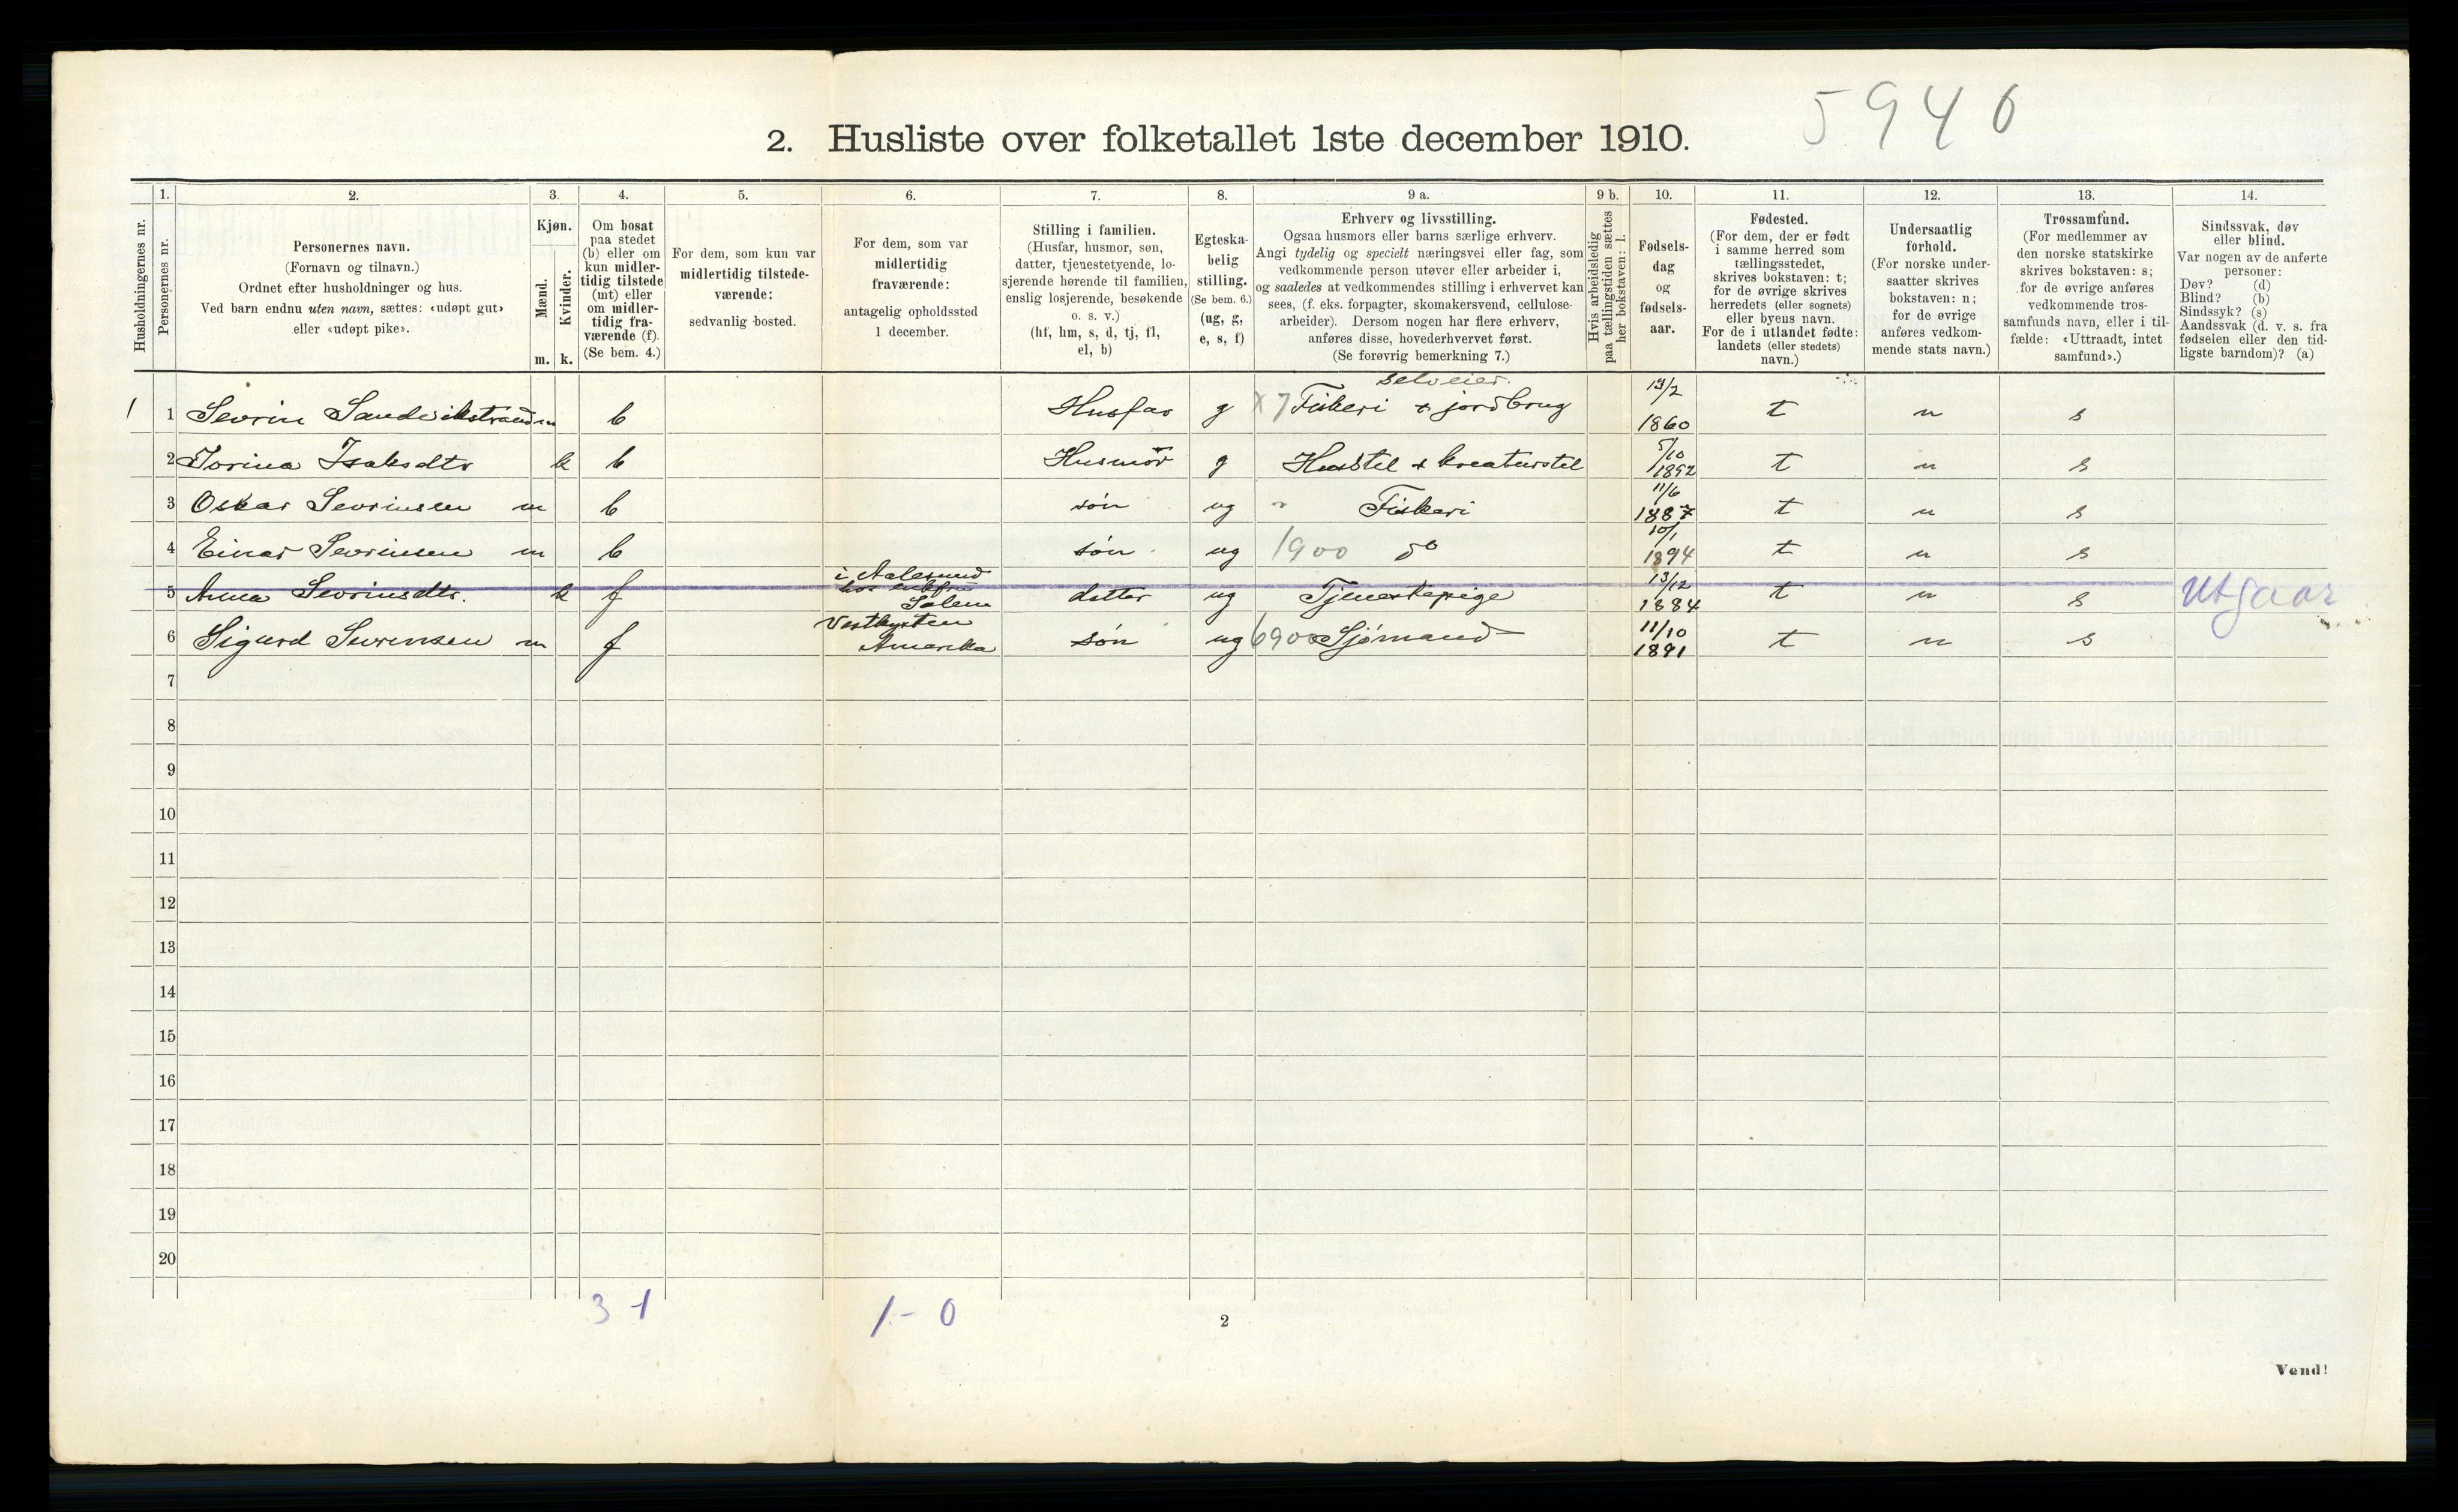 5940
2. Husliste over folketallet 1ste december 1910.
Husholdningernes nr.
1.
Personernes nr.
2.
Personernes navn.
(Fornavn og tilnavn.)
Ordnet efter husholdninger og hus.
Ved barn endnu uten navn, sættes: «udøpt gut»
eller «udøpt pike».
3.
Kjøn.
Mænd.
Kvinder.
m. k.
4.
Om bosat
paa stedet
(b) eller om
kun midler-
tidig tilstede
(mt) eller
om midler-
tidig fra-
værende (f).
(Se bem. 4.)
5.
For dem, som kun var
midlertidig tilstede-
værende:
sedvanlig bosted.
6.
For dem, som var
midlertidig
fraværende:
antagelig opholdssted
1 december.
7.
Stilling i familien.
(Husfar, husmor, søn,
datter, tjenestetyende, lo-
sjerende hørende til familien,
enslig losjerende, besøkende
o. s. v.)
(hf, hm, s, d, tj, fl,
el, b)
8.
Egteska-
belig
stilling.
(Se bem. 6.)
(ug, g,
e, s, f)
9 a.
Erhverv og livsstilling.
Ogsaa husmors eller barns særlige erhverv.
Angi tydelig og specielt næringsvei eller fag, som
vedkommende person utøver eller arbeider i,
og saaledes at vedkommendes stilling i erhvervet kan
sees, (f. eks. forpagter, skomakersvend, cellulose-
arbeider). Dersom nogen har flere erhverv,
anføres disse, hovederhvervet først.
(Se forøvrig bemerkning 7.)
9 b.
Hvis arbeidsledig
paa tællingstiden sættes
her bokstaven: l.
10.
Fødsels-
dag
og
fødsels-
aar.
11.
Fødested.
(For dem, der er født
i samme herred som
tællingsstedet,
skrives bokstaven: t;
for de øvrige skrives
herredets (eller sognets)
eller byens navn.
For de i utlandet fødte:
landets (eller stedets)
navn.)
12.
Undersaatlig
forhold.
(For norske under-
saatter skrives
bokstaven: n;
for de øvrige
anføres vedkom-
mende stats navn.)
13.
Trossamfund.
(For medlemmer av
den norske statskirke
skrives bokstaven: s;
for de øvrige anføres
vedkommende tros-
samfunds navn, eller i til-
fælde: «Uttraadt, intet
samfund».)
14.
Sindssvak, døv
eller blind.
Var nogen av de anførte
personer:
Døv? (d)
Blind? (b)
Sindssyk? (s)
Aandssvak (d. v. s. fra
fødselen eller den tid-
ligste barndom)? (a)
selveier.
1 1 Sevrin Sandvikstrand m b Husfar g X 7 Fiskeri & jordbrug 13/2 1860 t n s
2 Isaksdtr k b Husmor g Husstel & kreaturstel 5/10 t n s
3 Oskar Sevrinsen m b søn ug " Fiskeri 11/6 1887 t n s
4 Einar Sevrinsen m b søn ug 1900 do 10/1 1894 t n s
5 Anna Sevrinsdtr. k f i Aalesund hos datter ug Tjenestepige 13/12 1884 t n s Utgaar
6 Sigurd Sevrinsen m f Vestkysten Amerika søn ug 6900 Sjømand 11/10 1891 t n s
7
8
9
10
11
12
13
14
15
16
17
18
19
20
3 - 1 1 - 0
2
Vend!